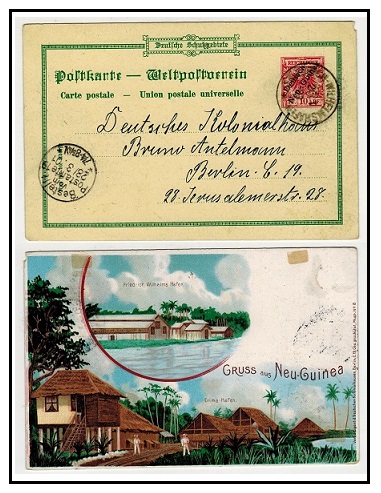 Deutsche Schutzgebiete
Postkarte — Weltpostverein
Carte postale — Union postale universelle
10
Deutsches Kolonialhaus
Bruno Antelmann
Berlin C. 19
28 Jerusalemerstr. 28
Bestellt
Friedrich Wilhelms Hafen
Gruss aus Neu-Guinea
Erima-Hafen